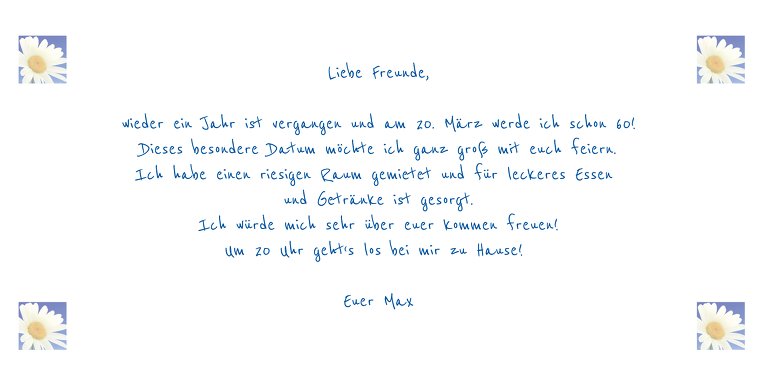 Liebe Freunde,
wieder ein Jahr ist vergangen und am 20. März werde ich schon 60!
Dieses besondere Datum möchte ich ganz groß mit euch feiern.
Ich habe einen riesigen Raum gemietet und für leckeres Essen
und Getränke ist gesorgt.
Ich würde mich sehr über euer Kommen freuen!
Um 20 Uhr geht's los bei mir zu Hause!
Euer Max